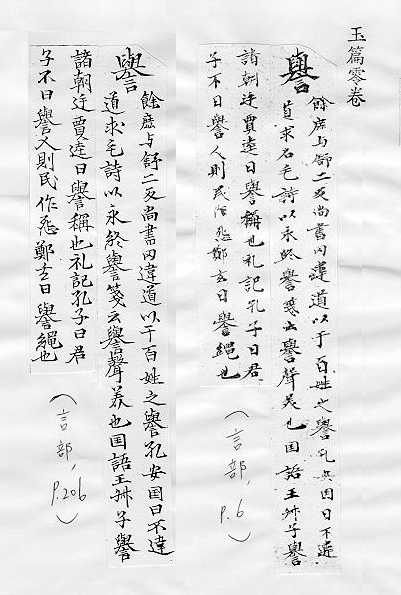 玉篇零卷
譽
餘庶与舒二反尚書罔違道以于百姓之譽孔安囯曰不違
求名毛詩以永終譽箋云譽聲美也囯語王叔子譽
諸朝廷賈逵曰譽稱也礼記孔子曰君
子不曰譽人則民作忠鄭玄曰譽繩也
(言部, P.6)
譽
餘庶与舒二反尚書罔違道以干百姓之譽孔安囯曰不違
道求毛詩以永終譽箋云譽聲美也囯語王叔子譽
諸朝廷賈逵曰譽稱也礼記孔子曰君
子不曰譽人則民作忠鄭玄曰譽繩也
(言部, P.206)